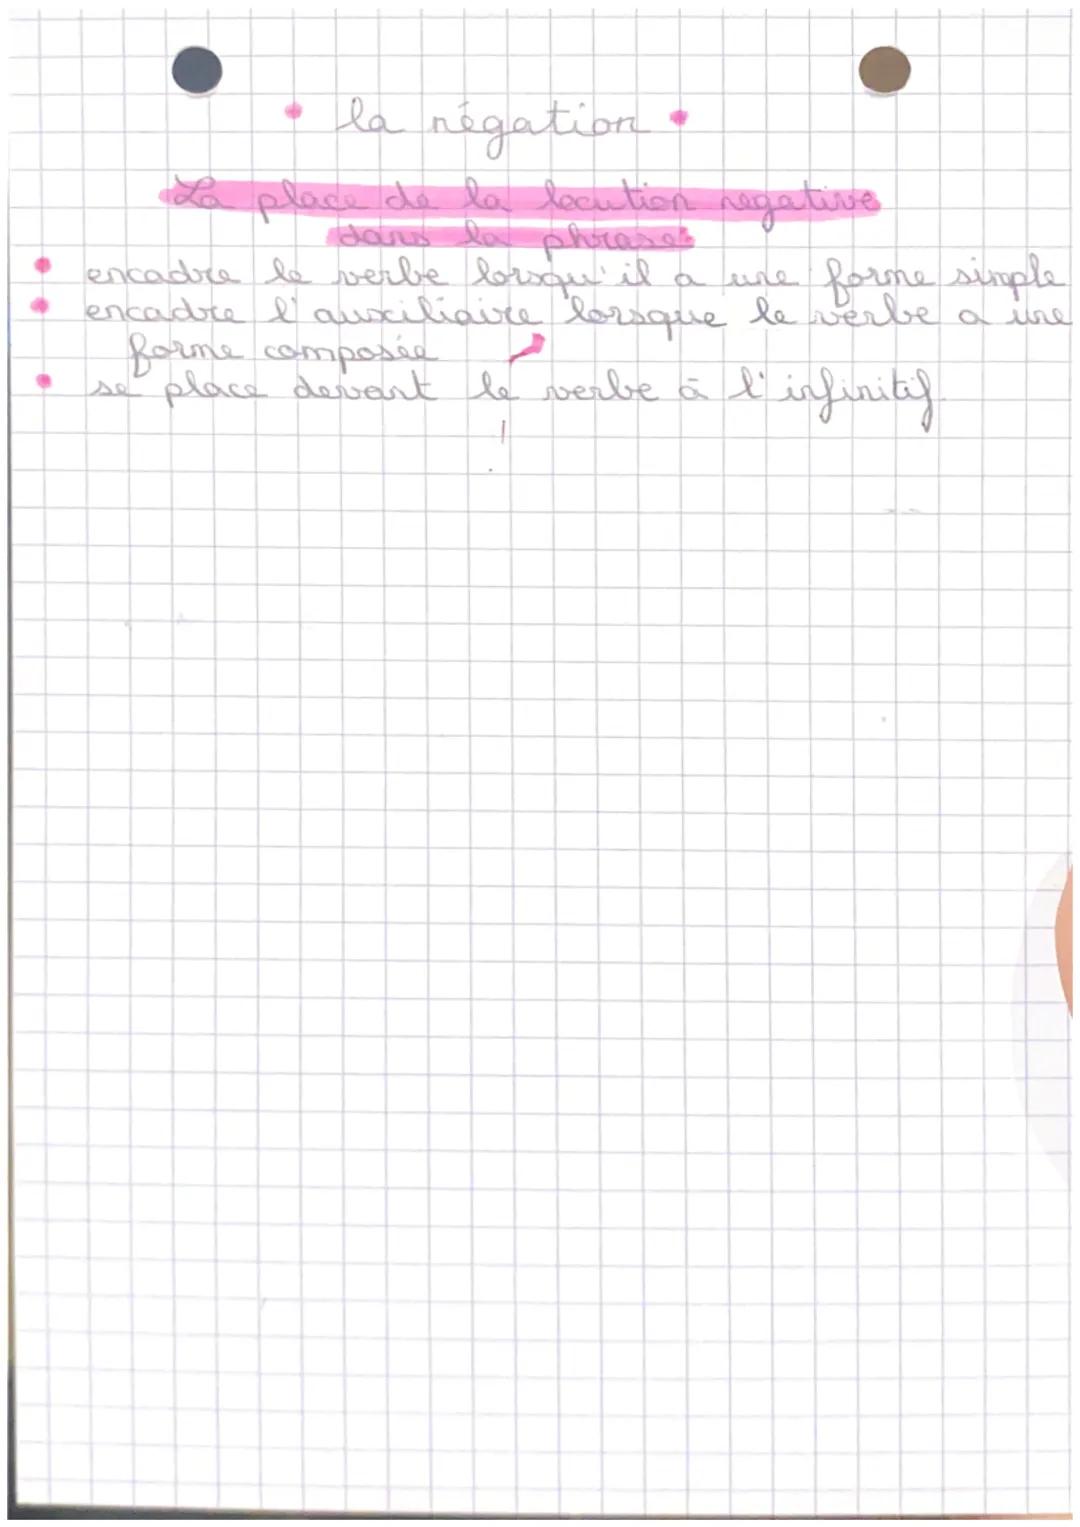 la négation
La place de la locution negative
dans la phrase
encadre le verbe lorsqu'il a une forme simple
encadre l'auxiliaire lorsque le verbe a une
forme composée
se place devant le verbe à l'infinitif